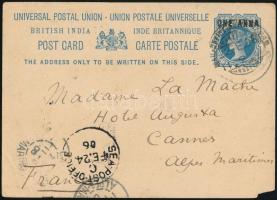 UNIVERSAL POSTAL UNION - UNION POSTALE UNIVERSELLE
BRITISH INDIA INDE BRITANNIQUE
POST CARD CARTE POSTALE
THE ADDRESS ONLY TO BE WRITTEN ON THIS SIDE.
ONE ANNA
Madame La Mache
Hotel Augusta
Cannes
Alpes Maritimes
France
SEA POST OFFICE
C
FE 24
06